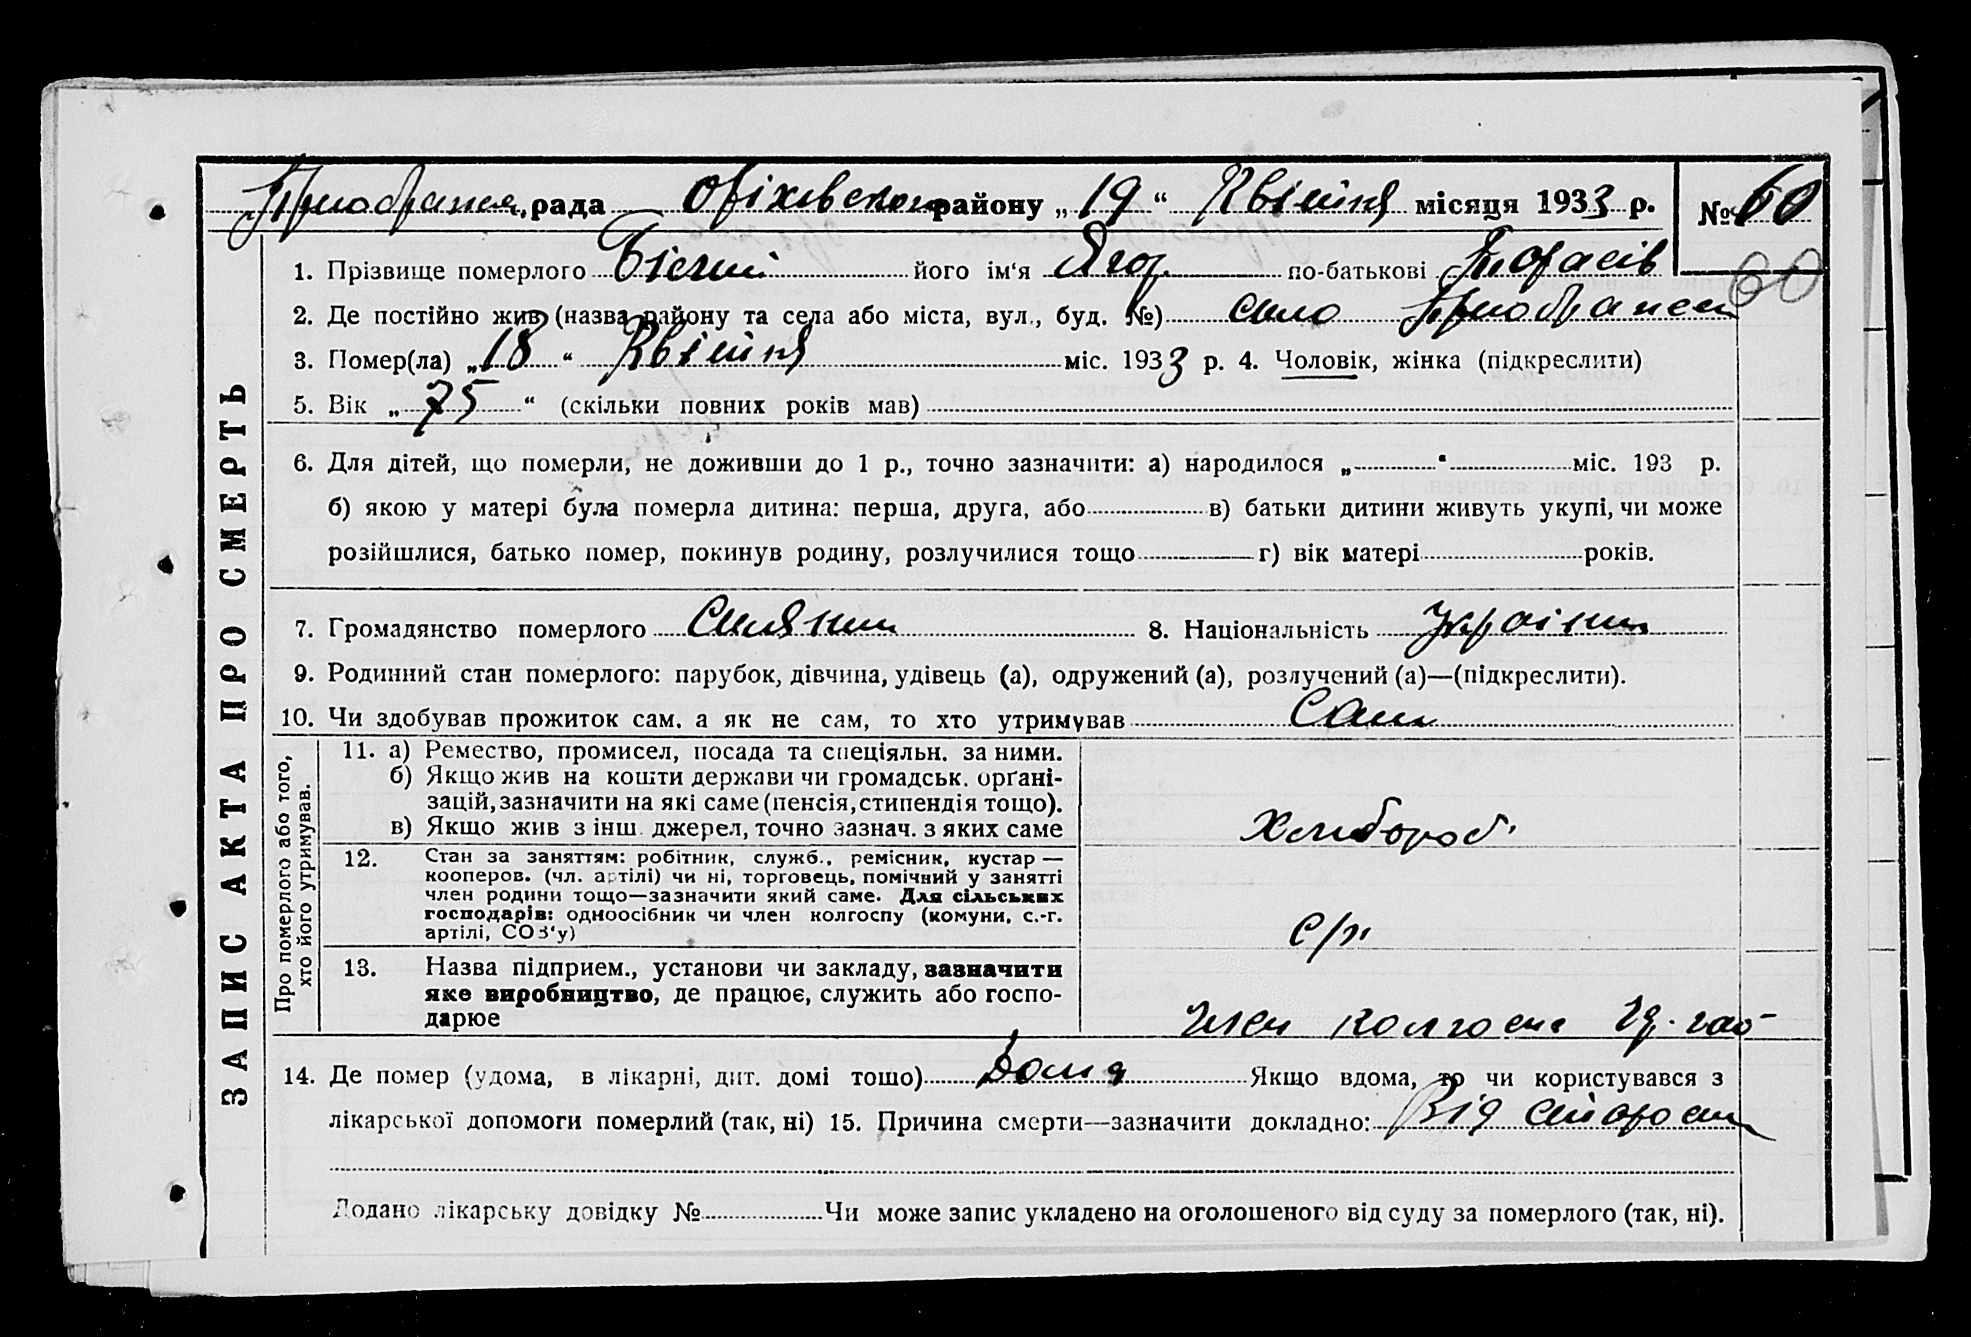 рада Оріхівского району „19“ Квітня місяця 1933 р.
№ 60
60
1. Прізвище померлого його ім‘я Ягор по-батькові Тарасів
2. Де постійно жив (назва району та села або міста, вул., буд. №) село
3. Помер(ла) „18“ Квітня міс. 1933 р. 4. Чоловік, жінка (підкреслити)
5. Вік „75“ (скільки повних років мав)
6. Для дітей, що померли, не доживши до 1 р., точно зазначити: а) народилося „ “ міс. 193 р.
б) якою у матері була померла дитина: перша, друга, або в) батьки дитини живуть укупі, чи може
розійшлися, батько помер, покинув родину, розлучилися тощо г) вік матері років.
7. Громадянство померлого Силянин 8. Національність Українц
9. Родинний стан померлого: парубок, дівчина, удівець (а), одружений (а), розлучений (а)—(підкреслити).
10. Чи здобував прожиток сам, а як не сам, то хто утримував Сам
ЗАПИС АКТА ПРО СМЕРТЬ
Про померлого або того,
хто його утримував.
11. а) Ремество, промисел, посада та спеціяльн. за ними.
б) Якщо жив на кошти держави чи громадськ. орґані-
зацій, зазначити на які саме (пенсія, стипендія тощо).
в) Якщо жив з інш. джерел, точно зазнач. з яких саме
Хлибороб
12. Стан за заняттям: робітник, служб., ремісник, кустар —
кооперов. (чл. артілі) чи ні, торговець, помічний у занятті
член родини тощо—зазначити який саме. Для сільських
господарів: одноосібник чи член колгоспу (комуни, с.-г.
артілі, СОЗ‘у)
с/г
13. Назва підприєм., установи чи закладу, зазначити
яке виробництво, де працює, служить або госпо-
дарює
член колгоспа
14. Де помер (удома, в лікарні, дит. домі тощо) Дома Якщо вдома, то чи користувався з
лікарської допомоги померлий (так, ні) 15. Причина смерти—зазначити докладно: Від старости
Додано лікарську довідку № Чи може запис укладено на оголошеного від суду за померлого (так, ні).